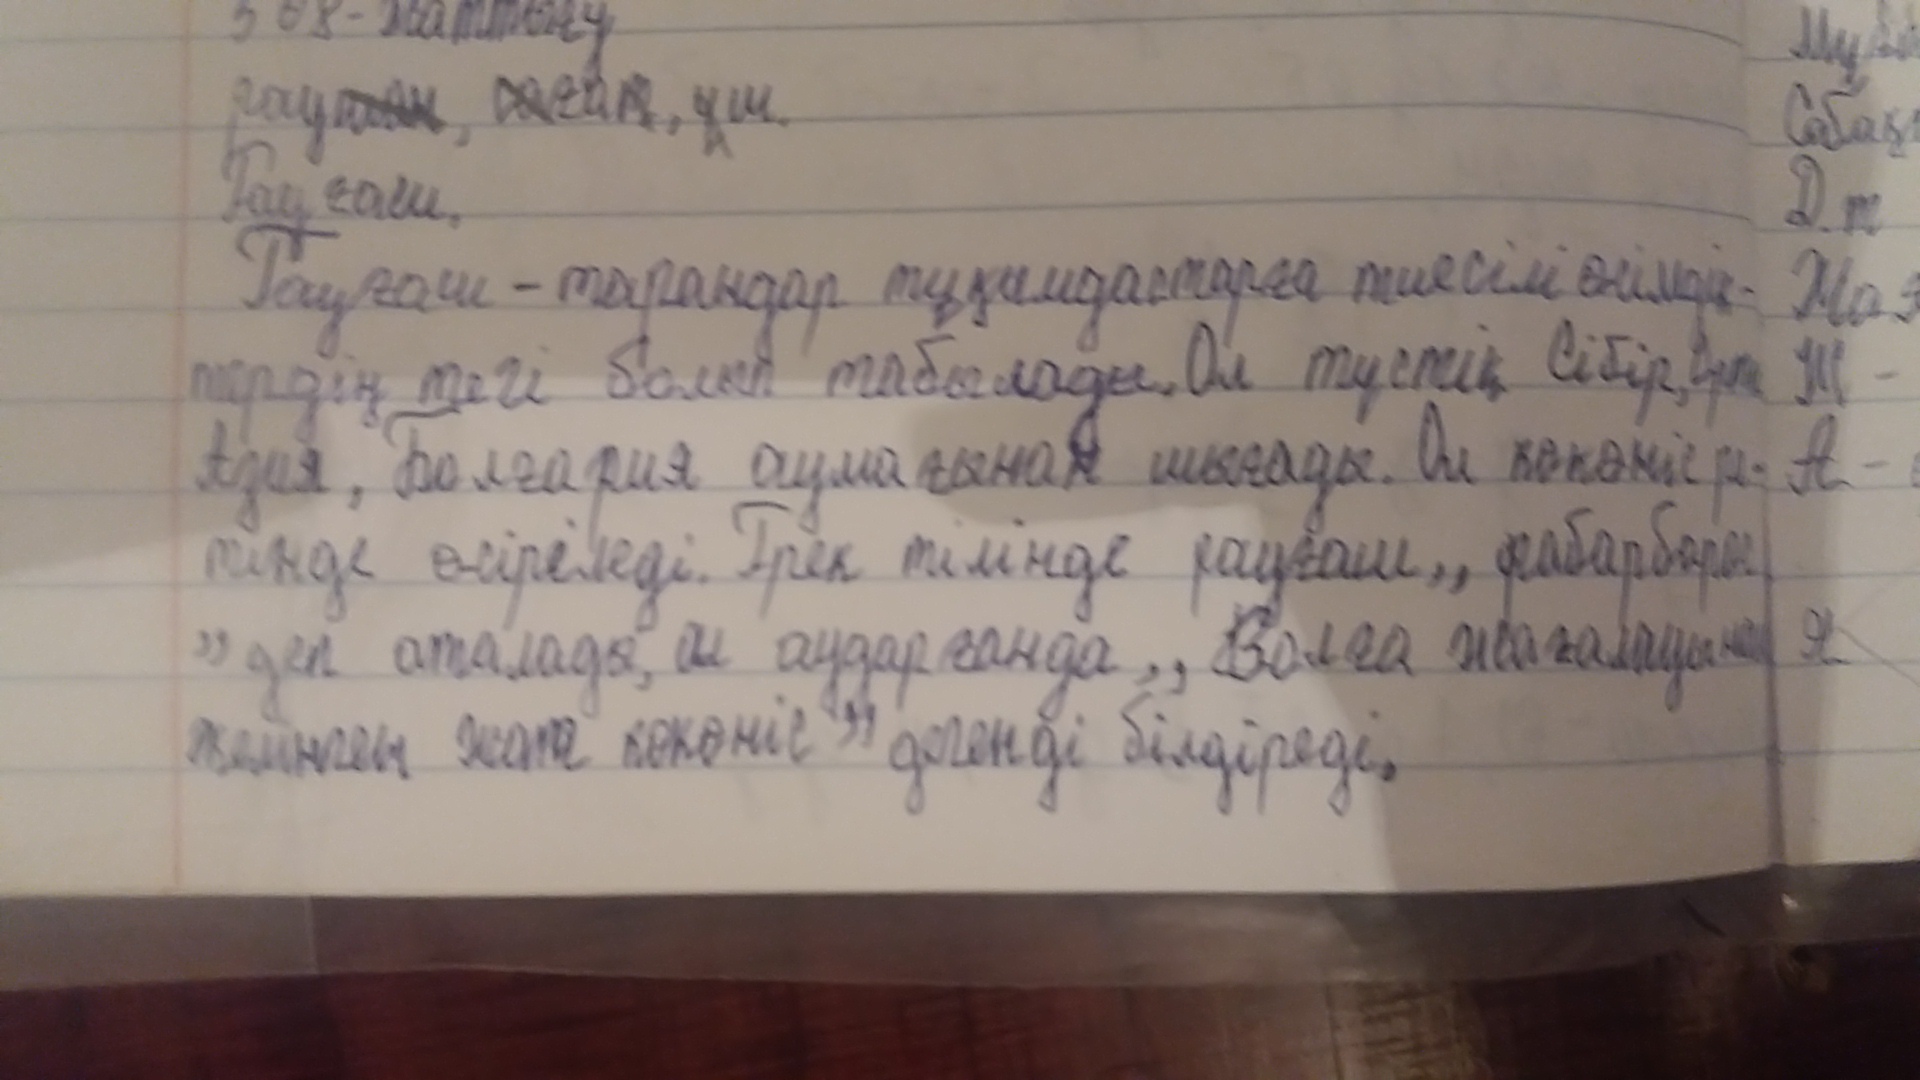 308-жаттығу
раушан, сағат, үш.
Рауғаш.
Рауғаш - тарандар тұқымдастарға тиесілі өсімдік-
тердің тегі болып табылады. Ол түстік Сібір, Орта
Азия, Болгария аумағынан шығады. Ол көкөніс ре-
тінде өсіріледі. Грек тілінде рауғаш „
” деп аталады, ол аударғанда „ Волга жағалауынан
келінген жат көкөніс ” дегенді білдіреді.
Сабақ
Д.т
Ж -
А -